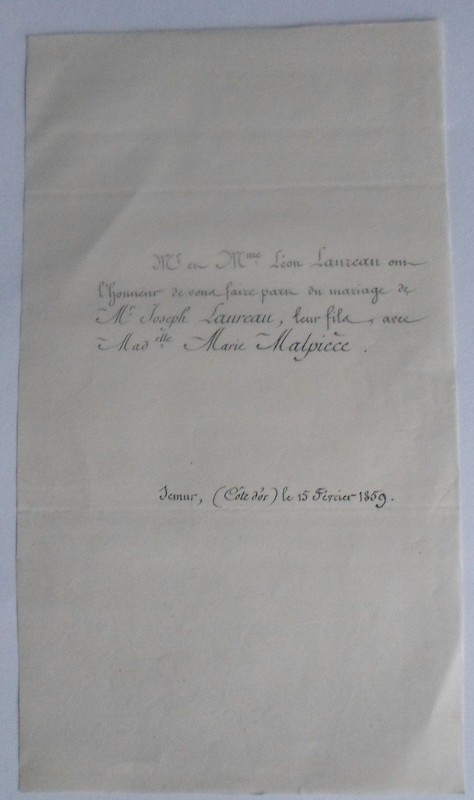 Mr et Mme Léon Laureau ont
l'honneur de vous faire part du mariage de
Mr Joseph Laureau, leur fils, avec
Madelle Marie Malpièce.
Semur, (Côte d'or) le 15 Février 1859.